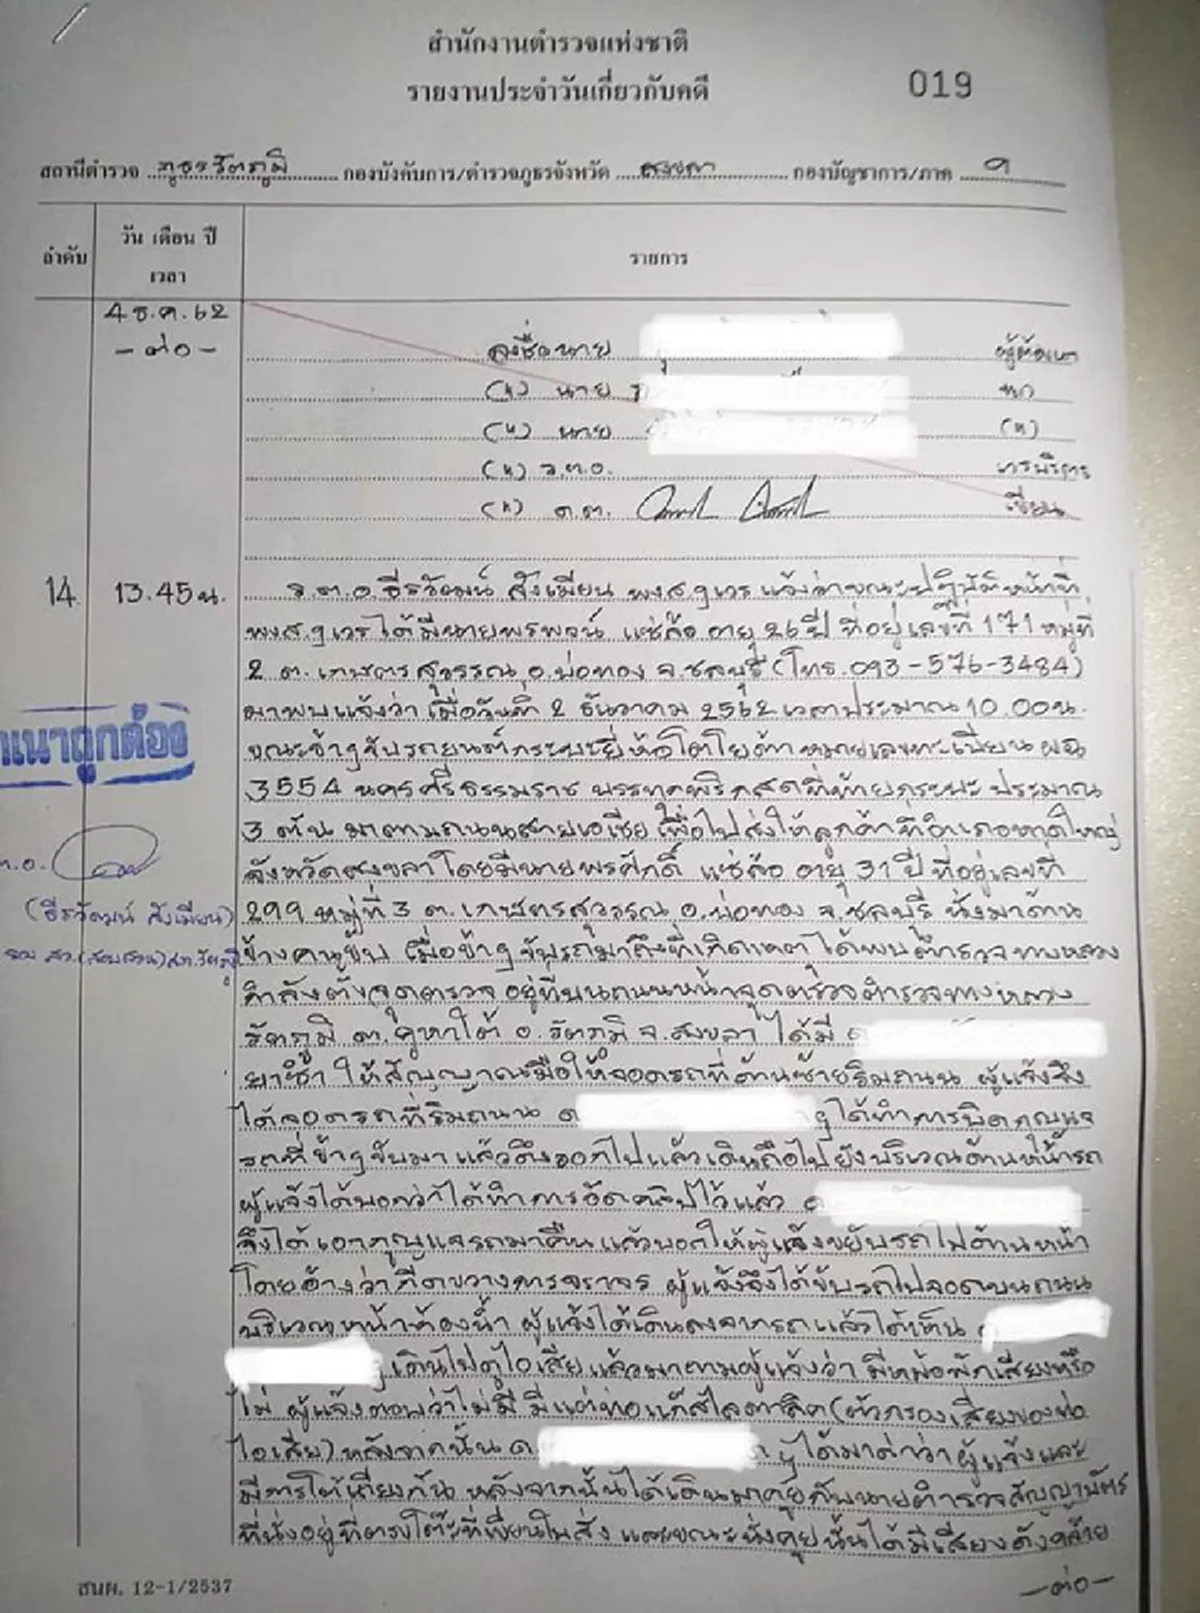 สำนักงานตำรวจแห่งชาติ
รายงานประจำวันเกี่ยวกับคดี
019
สถานีตำรวจ ภูธรรัตภูมิ กองบังคับการ/ตำรวจภูธรจังหวัด สงขลา กองบัญชาการ/ภาค ๙
ลำดับ วัน เดือน ปี เวลา รายการ
4 ธ.ค.62
-ต่อ-
ลงชื่อนาย
(น) นาย
(น) นาย (น)
(น) ร.ต.อ.
(น) ด.ต. เขียน
14 13.45 น. ร.ต.อ.ธีรวัฒน์ สังเมียน พงส.ฯเวร แจ้งว่าขณะปฏิบัติหน้าที่
พงส.ฯเวรได้มีนายพรพจน์ แซ่ล้อ อายุ 26 ปี ที่อยู่เลขที่ 171 หมู่ที่
2 ต.เกษตรสุวรรณ อ.บ่อทอง จ.ชลบุรี (โทร.093-576-3484)
มาพบแจ้งว่า เมื่อวันที่ 2 ธันวาคม 2562 เวลาประมาณ 10.00 น.
ขณะข้าฯขับรถยนต์กระบะยี่ห้อโตโยต้า หมายเลขทะเบียน ผฉ
3554 นครศรีธรรมราช บรรทุกพริกสดที่ท้ายกระบะ ประมาณ
3 ตัน มาตามถนนสายเอเซีย เพื่อไปส่งให้ลูกค้าที่อำเภอหาดใหญ่
จังหวัดสงขลา โดยมีนายพรศักดิ์ แซ่ล้อ อายุ 31 ปี ที่อยู่เลขที่
299 หมู่ที่ 3 ต.เกษตรสุวรรณ อ.บ่อทอง จ.ชลบุรี นั่งมาด้าน
ข้างคนขับ เมื่อข้าฯขับรถมาถึงที่เกิดเหตุ ได้พบตำรวจทางหลวง
กำลังตั้งจุดตรวจ อยู่ที่บนถนนหน้าจุดตรวจตำรวจทางหลวง
รัตภูมิ ต.คูหาใต้ อ.รัตภูมิ จ.สงขลา ได้มี ด
ให้สัญญาณมือให้จอดรถที่ด้านซ้ายริมถนน ผู้แจ้งจึง
ได้จอดรถที่ริมถนน ด ฯได้ทำการบิดกุญแจ
รถที่ข้าฯขับมา แล้วดึงออกไปแล้วเดินถือไปยังบริเวณด้านหน้ารถ
ผู้แจ้งได้บอกว่าได้ทำการอัดคลิปไว้แล้ว ด
จึงได้เอากุญแจรถมาคืน แล้วบอกให้ผู้แจ้งขยับรถไปด้านหน้า
โดยอ้างว่ากีดขวางการจราจร ผู้แจ้งจึงได้ขับรถไปจอดบนถนน
บริเวณหน้าห้องน้ำ ผู้แจ้งได้เดินลงจากรถแล้วได้เห็น ด
เดินไปดูไอเสีย แล้วมาถามผู้แจ้งว่า มีหม้อพักเสียงหรือ
ไม่ ผู้แจ้งตอบว่าไม่มี มีแต่ท่อแก๊สไลตาลิค (ตัวกรองเสียงของท่อ
ไอเสีย) หลังจากนั้น ด ฯได้มาด่าว่าผู้แจ้งและ
มีการโต้เถียงกัน หลังจากนั้นได้เดินมาคุยกับนายตำรวจสัญญาบัตร
ที่นั่งอยู่ที่ตรงโต๊ะที่เขียนใบสั่ง และขณะนั่งคุยนั้นได้มีเสียงดังคล้าย
-ต่อ-
เนาถูกต้อง
ต.อ.
(ธีรวัฒน์ สังเมียน)
รอง สว.(สอบสวน)
สนผ. 12-1/2537